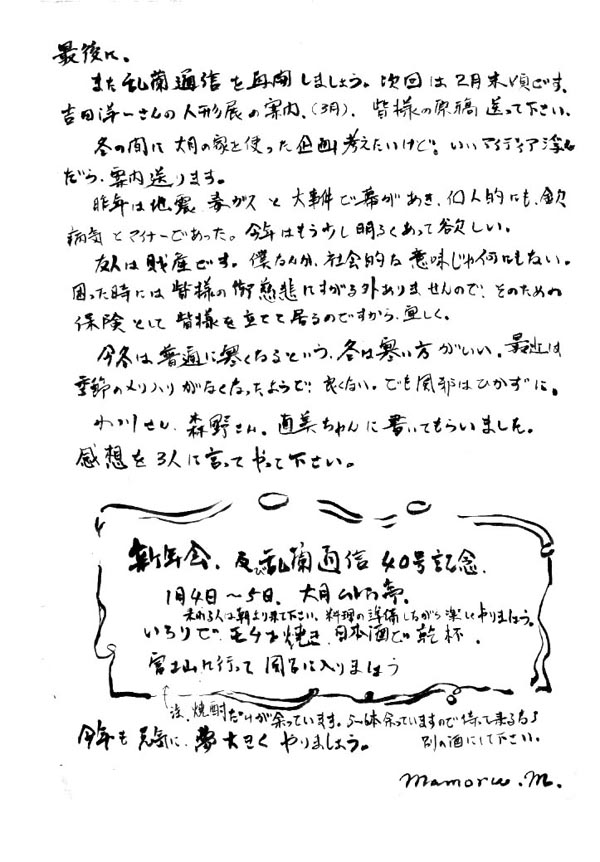 最後に。
また乱蘭通信を再開しましょう。次回は2月末頃です。
吉田洋一さんの人形展の案内、(3月)、皆様の原稿送って下さい。
冬の間に大月の家を使った企画考えたいけど、いいアイディア浮
だら、案内送ります。
昨年は地震、毒ガスと大事件で幕があき、個人的にも、
病気とマイナーであった。今年はもう少し明るくあって欲しい。
友人は財産です。僕なんか、社会的な意味じゃ何にもない。
困った時には皆様の御慈悲にすがる外ありませんので、そのための
保険として皆様を立てて居るのですから、宜しく。
今冬は普通に寒くなるという、冬は寒い方がいい。最近は
季節のメリハリがなくなったようで、良くない。でも風邪はひかずに。
森野さん、直美ちゃんに書いてもらいました。
感想を3人に言ってやって下さい。
新年会、及び乱蘭通信40号記念、
1月4日〜5日、大月
来れる人は朝より来て下さい、料理の準備しながら楽しくやりましょう。
いろりでモチお焼き、日本酒で乾杯、
富士山に行って風呂に入りましょう
注、焼酎だけが余っています。5〜6本余っていますので持って来るなら
別の酒にして下さい。
今年も元気に、夢大きくやりましょう。
Mamoru.M.